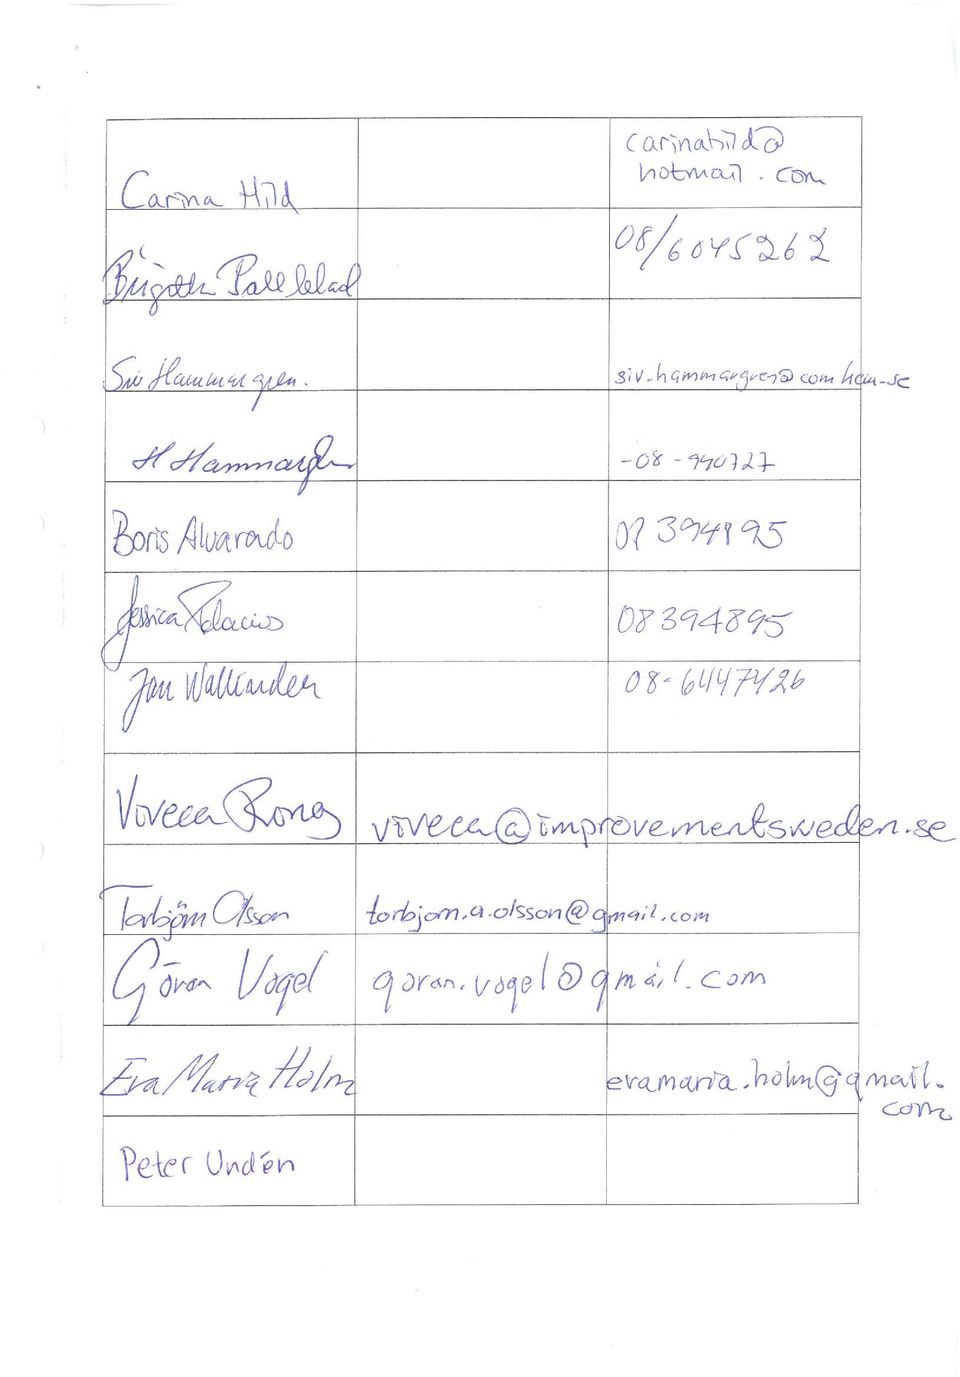 carinahild@
hotmail.com
Carina Hild
08/6045262
Birgitta Pallblad
Siv Hammargren.
siv.hammargren@comhem.se
H Hammargren
-08-940727
Boris Alvarado
08 394895
Jessica Palacios
08 394895
Jan Wallinder
08-6447426
Viveca Rong
viveca@improvementsweden.se
Torbjörn Olsson
torbjorn.a.olsson@gmail.com
Göran Vogel
goran.vogel@gmail.com
Eva Maria Holm
evamaria.holm@gmail.
com
Peter Undén